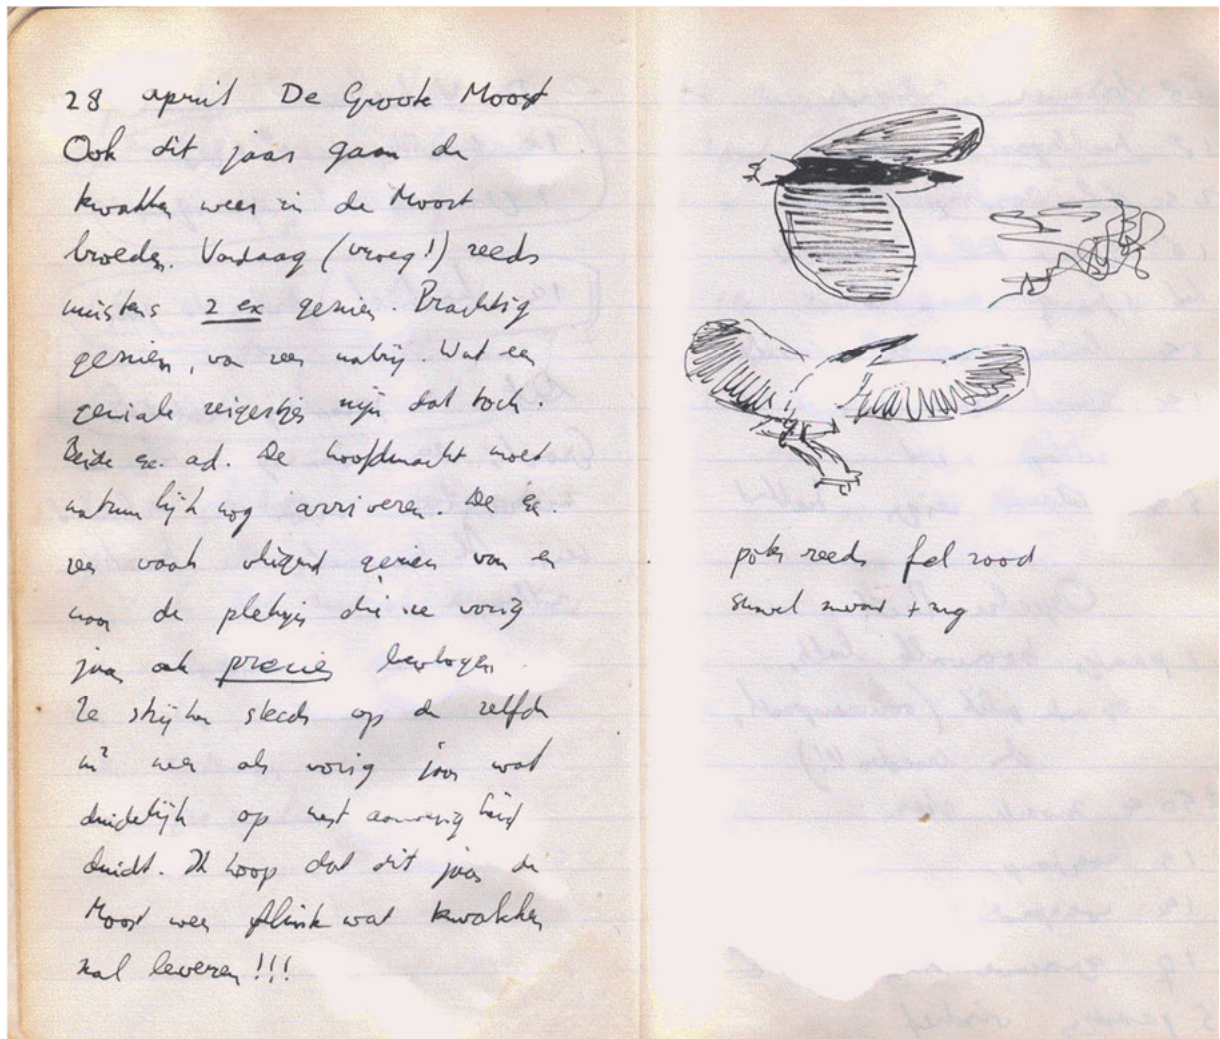 28 april De Groote Moost
Ook dit jaar gaan de
kwakken weer in de Moost
broeden. Vandaag (vroeg!) reeds
minstens 2 ex gezien. Prachtig
gezien, van zeer nabij. Wat een
geniale reigertjes zijn dat toch.
Beide ex. ad. De hoofdmacht moet
natuurlijk nog arriveren. De ex.
zeer vaak vliegend gezien van en
naar de plekjes die ze vorig
jaar ook precies bevlogen.
Ze strijken steeds op de zelfde
m² neer als vorig jaar wat
duidelijk op nest aanwezigheid
duidt. Ik hoop dat dit jaar de
Moost weer flink wat kwakken
zal leveren!!!
poten reeds fel rood
snavel zwart + rug